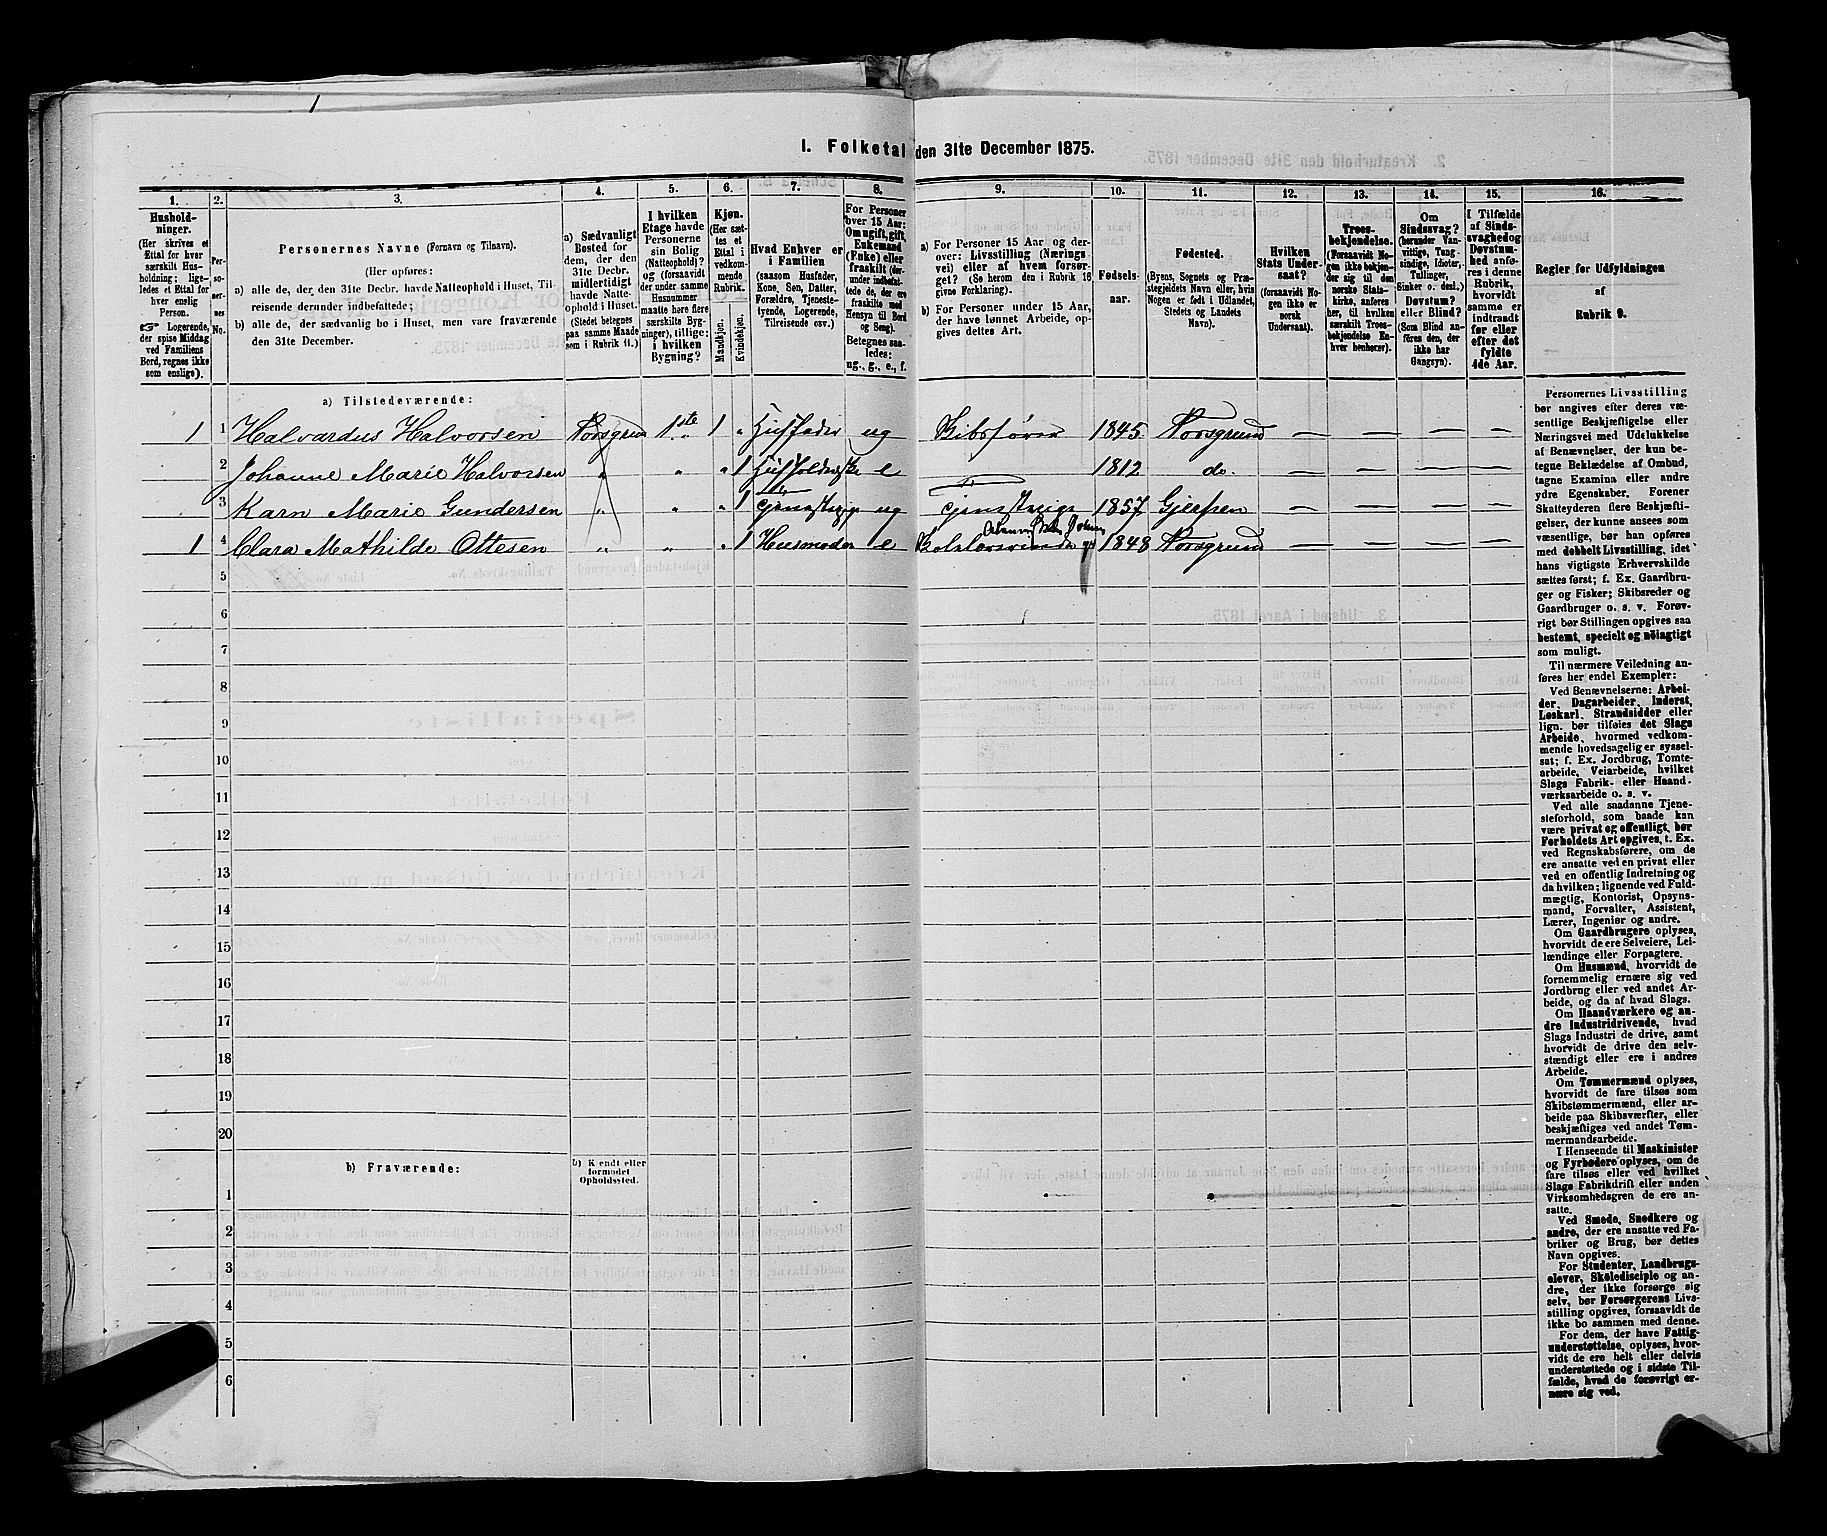 I. Folketal den 31te December 1875.
1. 2. 3. 4. 5. 6. 7. 8. 9. 10. 11. 12. 13. 14. 15. 16.
Hushold-
ninger.
(Her skrives et
Ettal for hver
særskilt Hus-
holdning; lige-
ledes et Ettal for
hver enslig
Person.
☞ Logerende,
der spise Middag
ved Familiens
Bord, regnes ikke
som enslige).
Per-
so-
ner-
nes
No.
Personernes Navne (Fornavn og Tilnavn).
(Her opføres:
a) alle de, der den 31te Decbr. havde Natteophold i Huset, Til-
reisende derunder indbefattede;
b) alle de, der sædvanlig bo i Huset, men vare fraværende
den 31te December.
a) Sædvanligt
Bosted for
dem, der den
31te Decbr.
midlertidigt
havde Natte-
ophold i Huset.
(Stedet betegnes
paa samme Maade
som i Rubrik 11.)
I hvilken
Etage havde
Personerne
sin Bolig
(Natteophold)?
og (forsaavidt
der under samme
Husnummer
maatte høre flere
særskilte Byg-
ninger), tillige:
i hvilken
Bygning?
Kjøn.
(Her sæt-
tes et
Ettal i
vedkom-
mende
Rubrik.
Mandkjøn.
Kvindekjøn.
Hvad Enhver er
i Familien
(saasom Husfader,
Kone, Søn, Datter,
Forældre, Tjeneste-
tyende, Logerende,
Tilreisende osv.)
For Personer
over 15 Aar:
Om ugift, gift,
Enkemand
(Enke) eller
fraskilt (der-
under indbefat-
tede de, der ere
fraskilte med
Hensyn til Bord
og Seng).
Betegnes saa-
ledes:
ug., g., e., f.
a) For Personer 15 Aar og der-
over: Livsstilling (Nærings-
vei) eller af hvem forsør-
get? (Se herom den i Rubrik 16
givne Forklaring).
b) For Personer under 15 Aar,
der have lønnet Arbeide, op-
gives dettes Art.
Fødsels-
aar.
Fødested.
(Byens, Sognets og Præ-
stegjeldets Navn eller, hvis
Nogen er født i Udlandet,
Stedets og Landets
Navn).
Hvilken
Stats Under-
saat?
(forsaavidt No-
gen ikke er
norsk
Undersaat).
Troes-
bekjendelse.
(Forsaavidt No-
gen ikke bekjen-
der sig til den
norske Stats-
kirke, anføres
her, til hvilken
særskilt Troes-
bekjendelse En-
hver henhører).
Om
Sindssvag?
(herunder Van-
vittige, Tung-
sindige, Idioter,
Tullinger,
Sinker o. desl.)
Døvstum?
eller Blind?
(Som Blind an-
føres den, der
ikke har
Gangsyn).
I Tilfælde
af Sinds-
svaghed og
Døvstum-
hed anføres
i denne
Rubrik,
hvorvidt
samme er
indtraadt
før eller
efter det
fyldte
4de Aar.
Regler for Udfyldningen
af
Rubrik 9.
a) Tilstedeværende:
1 1 Halvardus Halvorsen Porsgrund 1ste 1 " Husfader ug Skibsfører 1845 Porsgrund — — — —
2 Johanne Marie Halvorsen " " " 1 e 1812 do. — — — —
3 Karn Marie Gundersen " " " 1 ug 1857 Gjerpen — — — —
1 4 Clara Mathilde Ottesen " " " 1 Husmoder e 1848 Porsgrund — — — —
5
6
7
8
9
10
11
12
13
14
15
16
17
18
19
20
b) Fraværende:
b) Kendt eller
formodet
Opholdssted.
1
2
3
4
5
6
Personernes Livsstilling
bør angives efter deres væ-
sentlige Beskjæftigelse eller
Næringsvei med Udelukkelse
af Benævnelser, der kun be-
tegne Beklædelse af Ombud,
tagne Examina eller andre
ydre Egenskaber. Forener
Skatteyderen flere Beskjæfti-
gelser, der kunne ansees som
væsentlige, bør han opføres
med dobbelt Livsstilling, idet
hans vigtigste Erhvervskilde
sættes først; f. Ex. Gaardbru-
ger og Fisker; Skibsreder og
Gaardbruger o. s. v. Forøv-
rigt bør Stillingen opgives saa
bestemt, specielt og nøiagtigt
som muligt.
Til nærmere Veiledning an-
føres her endel Exempler:
Ved Benævnelserne: Arbei-
der, Dagarbeider, Inderst,
Løskarl, Strandsidder eller
lign. bør tilføies det Slags
Arbeide, hvormed vedkom-
mende hovedsagelig er syssel-
sat; f. Ex. Jordbrug, Tomte-
arbeide, Veiarbeide, hvilket
Slags Fabrik- eller Haand-
værksarbeide o. s. v.
Ved alle saadanne Tjene-
steforhold, som baade kan
være privat og offentligt, bør
Forholdets Art opgives, t. Ex.
ved Regnskabsførere, om de
ere ansatte ved en privat eller
ved en offentlig Indretning og
da hvilken; lignende ved Fuld-
mægtig, Kontorist, Opsyns-
mand, Forvalter, Assistent,
Lærer, Ingeniør og andre.
Om Gaardbrugere oplyses,
hvorvidt de ere Selveiere, Lei-
lændinge eller Forpagtere.
Om Husmænd, hvorvidt de
fornemmelig ernære sig ved
Jordbrug eller ved andet Ar-
beide, og da af hvad Slags.
Om Haandværkere og an-
dre Industridrivende, hvad
Slags Industri de drive, samt
hvorvidt de drive den selv-
stændigt eller ere i andres
Arbeide.
Om Tømmermænd oplyses,
hvorvidt de fare tilsøs som
Skibstømmermænd, eller ar-
beide paa Skibsværfter, eller
beskjæftiges ved andet Tøm-
mermandsarbeide.
I Henseende til Maskinister
og Fyrbødere oplyses, om de
fare tilsøs eller ved hvilket
Slags Fabrikdrift eller anden
Virksomhedsgren de ere an-
satte.
Ved Smede, Snedkere og
andre, der ere ansatte ved Fa-
briker og Brug, bør dettes
Navn opgives.
For Studenter, Landbrugs-
elever, Skoledisciple og an-
dre, der ikke forsørge sig
selv, bør Forsørgerens Livs-
stilling opgives, forsaavidt de
ikke bo sammen med denne.
For dem, der have Fattig-
understøttelse, oplyses, hvor-
vidt de ere helt eller delvis
understøttede og i sidste Til-
fælde, hvad de forøvrigt er-
nære sig ved.